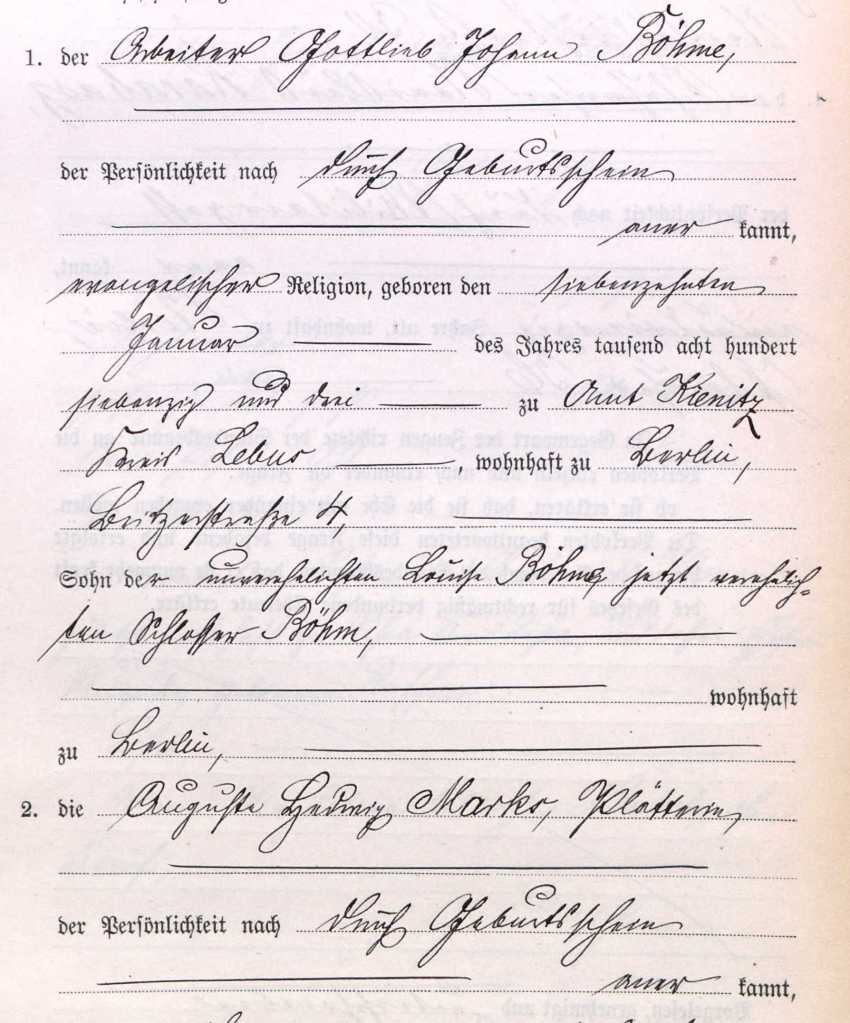 1. der Arbeiter Gottlieb Johann Böhme,
der Persönlichkeit nach durch Geburtsschein
aner kannt,
evangelischer Religion, geboren den siebenzehnten
Januar des Jahres tausend acht hundert
siebenzig und drei zu Amt Kienitz
Kreis Lebus, wohnhaft zu Berlin,
Britzerstraße 4,
Sohn der unverehelichten Louise Böhme, jetzt verehelich-
ten Schlosser Böhm,
wohnhaft
zu Berlin,
2. die Auguste Hedwig Marks, Plätterin,
der Persönlichkeit nach durch Geburtsschein
aner kannt,